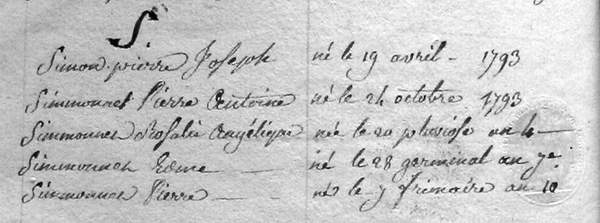 S
Simon pierre Joseph né le 19 avril - 1793
Simmonnet Pierre Antoine né le 24 octobre 1793
Simmonnet Rosalie Angélique née le 20 pluviose an 4 -
Simmonnet Edme né le 28 germinal an 7e
Simmonnet Pierre né le 7 frimaire an 10